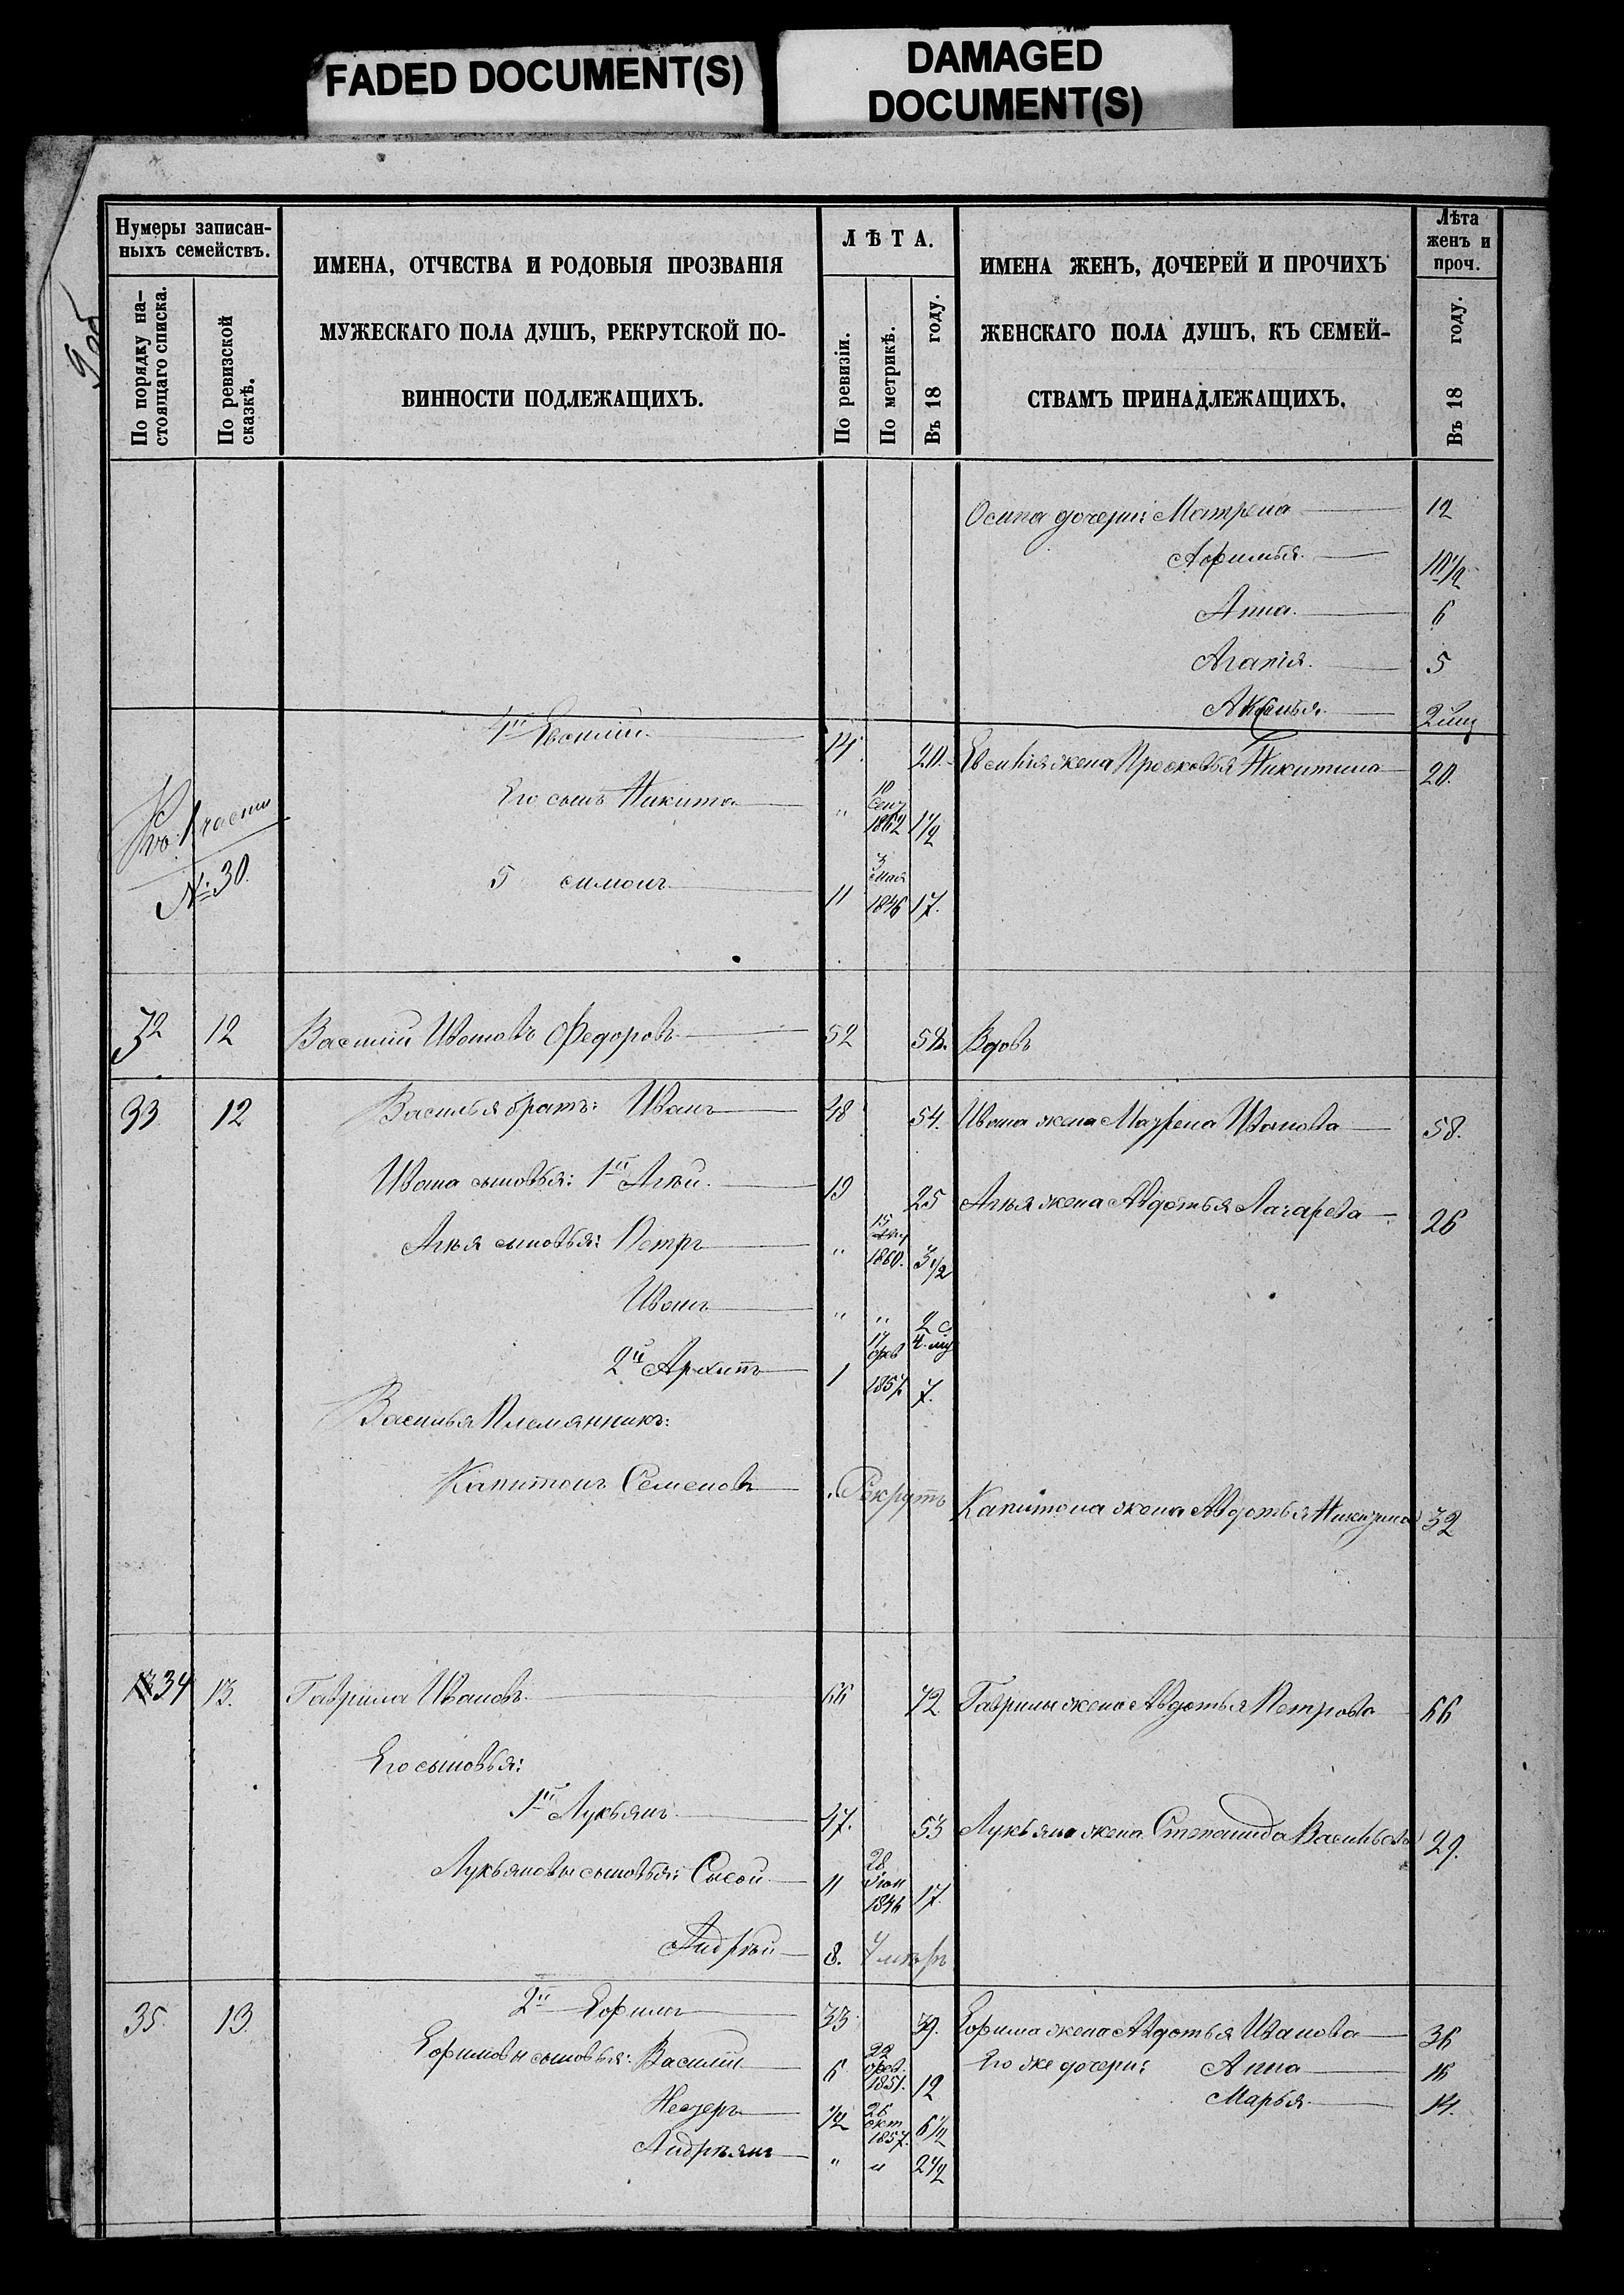 FADED DOCUMENT(S)
DAMAGED
DOCUMENT(S)
Нумеры записан-
ныхъ семействъ.
По порядку на-
стоящаго списка.
По ревизской
сказкѣ.
ИМЕНА, ОТЧЕСТВА И РОДОВЫЯ ПРОЗВАНІЯ
МУЖЕСКАГО ПОЛА ДУШЪ, РЕКРУТСКОЙ ПО-
ВИННОСТИ ПОДЛЕЖАЩИХЪ.
ЛѢТА.
По ревизіи.
По метрикѣ.
Въ 18 году.
ИМЕНА ЖЕНЪ, ДОЧЕРЕЙ И ПРОЧИХЪ
ЖЕНСКАГО ПОЛА ДУШЪ, КЪ СЕМЕЙ-
СТВАМЪ ПРИНАДЛЕЖАЩИХЪ.
Лѣта
женъ и
проч.
Въ 18 году.
Осипа дочери: Матрена 12
Афимья 10 1/2
Анна. 6
Агапія. 5
Аксинья. 2
4й Евсигній 14. 20. Евсигнія жена Просковья Никитина 20.
Его сынъ Никита " 10 Сен 1862 1 1/2
№ 30.
5 Симонъ 11 3 мая 1846 17.
32 12 Василій Ивановъ Федоровъ 52 58. Вдовъ
33 12 Василья братъ: Иванъ 48 54. Ивана жена Матрена Иванова 58.
Ивана сыновья: 1й Агѣй. 19 25 Агѣя жена Авдотья Лазарева 26
Агѣя сыновья: Петръ " 15 1860. 3 1/2
Иванъ " " 2
2й Архипъ 1 17 фев 1857 7.
Василья Племянникъ:
Капитонъ Семеновъ Рекрутъ Капитона жена Авдотья Никитина 32
34 13. Гаврила Ивановъ 66 72. Гаврилы жена Авдотья Петрова 66
Его сыновья:
1й Лукьянъ 47. 53 Лукьяна жена Степанида Васильева 29.
Лукьяновы сыновья: Сысой 11 28 1846 17.
Андрѣй 8. Умѣръ
35. 13. 2й Ефимъ 33 39. Ефима жена Авдотья Иванова 36
Ефимовы сыновья: Василій 6 22 фев. 1851. 12 Его же дочери: Анна 16
Марья 14.
Несторъ 1/2 26 окт 1857. 6 1/2
Андреянъ " " 2 1/2